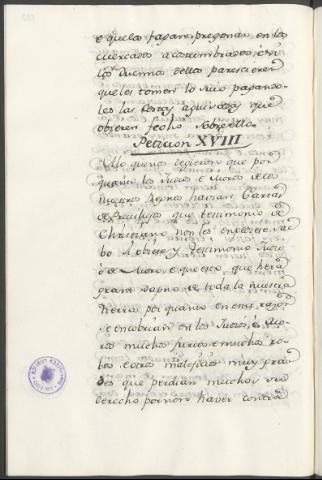 e que los fagan pregonar en los
mercados acostumbrados, e si
los Duennos dellos parescieren
que les tomen lo suio pagando
les las costas aguisadas que
obieren fecho sobrello.
Peticion XVIII
A lo que nos dixieron que por
quanto los Judios e Moros de los
nuestros Regnos havian Cartas
de Previllejos que testimonio de
Christiano non les enpeciese sal
bo si obiese y testimonio Judio
ó de Moro, e que esto que hera
grant dapno de toda la nuestra
tierra por quanto en esta razon
se encobrian en los Judios, é Mo
ros muchos furtos e muchos ro
bos e otros maleficios muy gran
des que perdian muchos su
derecho por non haver contra